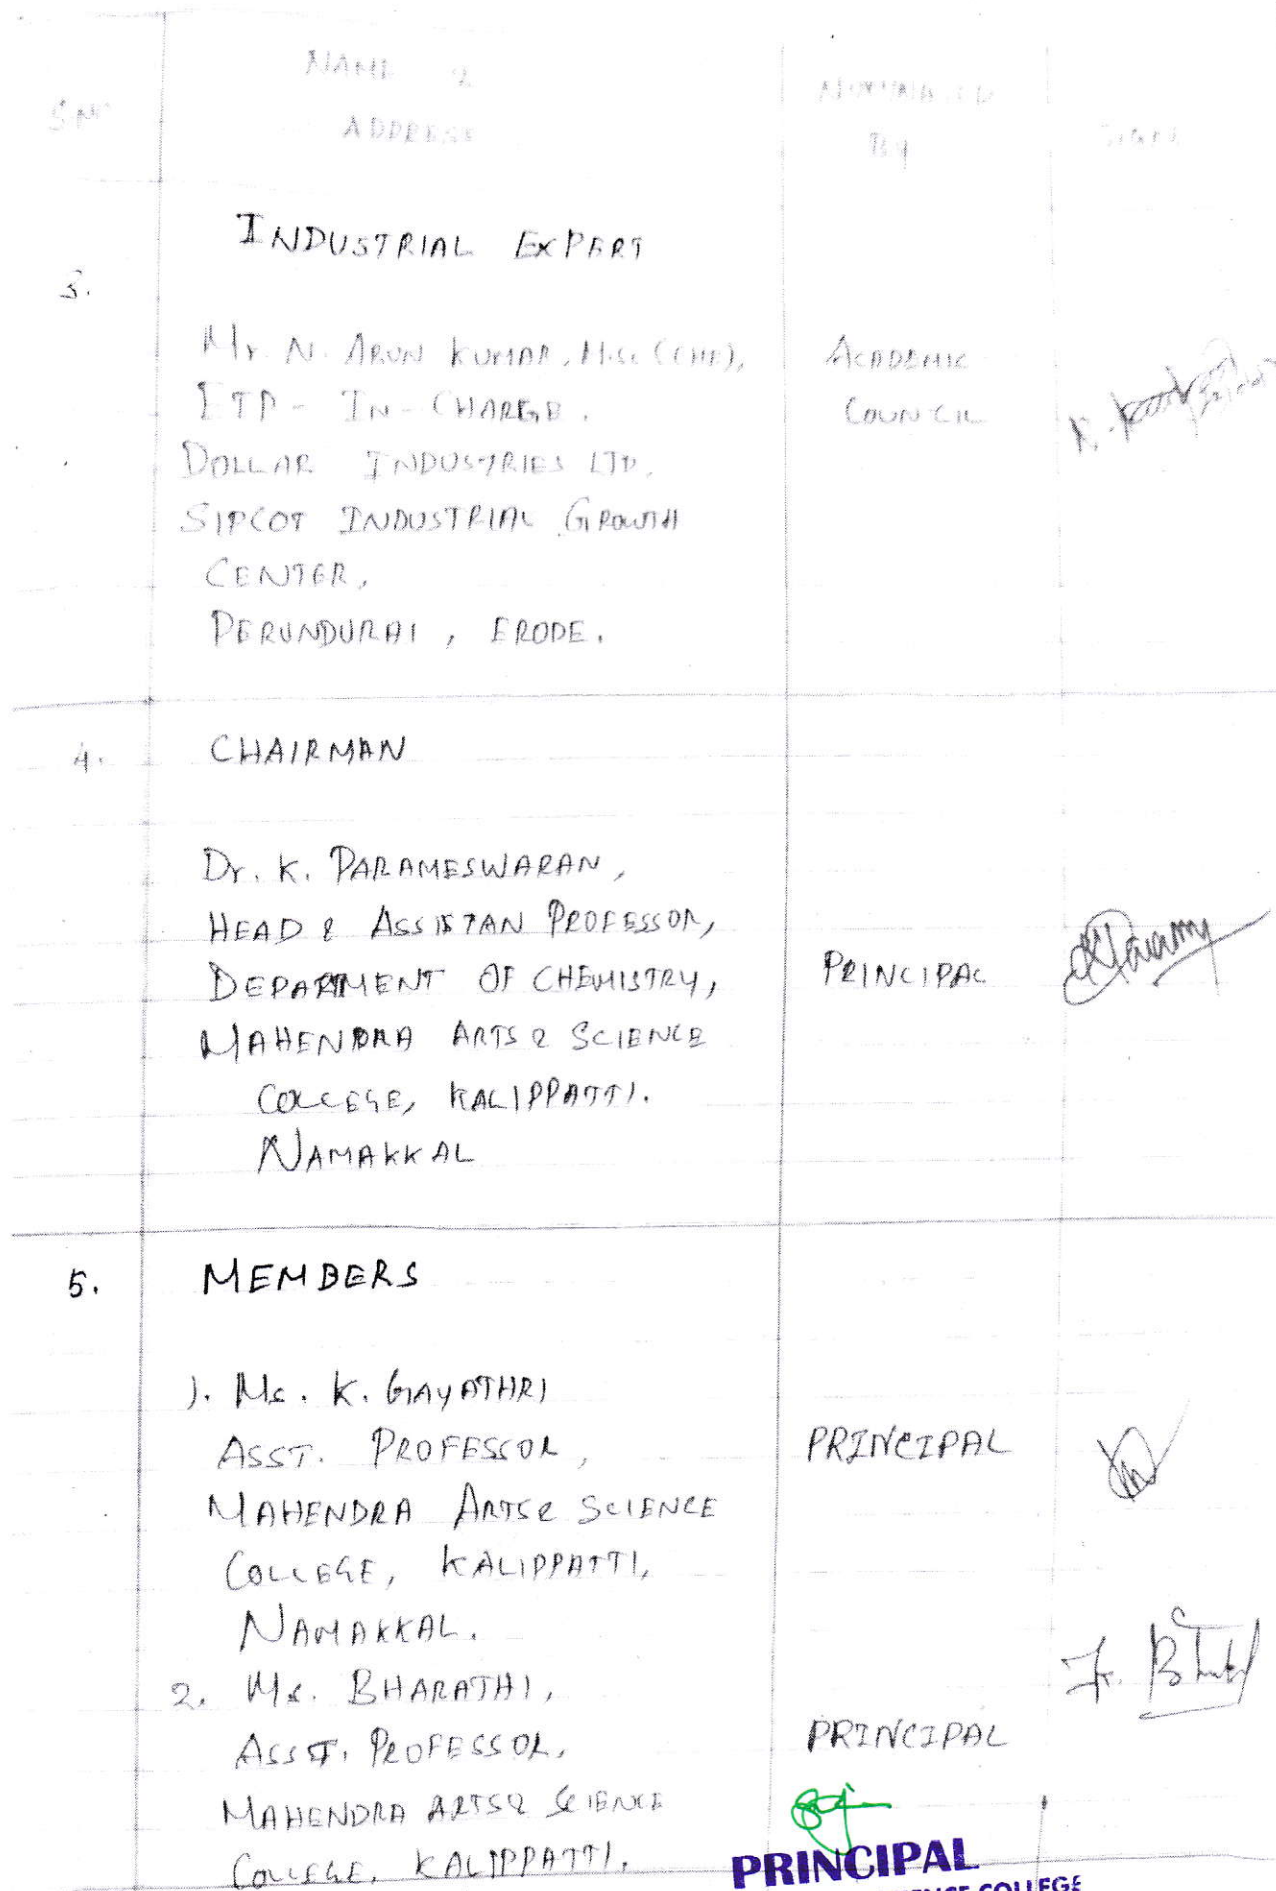 S.NO
NAME &
ADDRESS
NOMINATED
BY
SIGN
3.
INDUSTRIAL EXPERT
Mr. N. ARUN KUMAR, M.Sc (CHE),
ETP - IN - CHARGE.
DOLLAR INDUSTRIES LTD,
SIPCOT INDUSTRIAL GROWTH
CENTER,
PERUNDURAI, ERODE.
ACADEMIC
COUNCIL
4.
CHAIRMAN
Dr. K. PARAMESWARAN,
HEAD & ASSISTAN PROFESSOR,
DEPARTMENT OF CHEMISTRY,
MAHENDRA ARTS & SCIENCE
COLLEGE, KALIPPATTI.
NAMAKKAL
PRINCIPAL
5.
MEMBERS
1. Ms. K. GAYATHRI
ASST. PROFESSOR,
MAHENDRA ARTS & SCIENCE
COLLEGE, KALIPPATTI,
NAMAKKAL.
PRINCIPAL
2. Ms. BHARATHI,
ASST. PROFESSOR,
MAHENDRA ARTS & SCIENCE
COLLEGE, KALIPPATTI.
PRINCIPAL
PRINCIPAL
COLLEGE